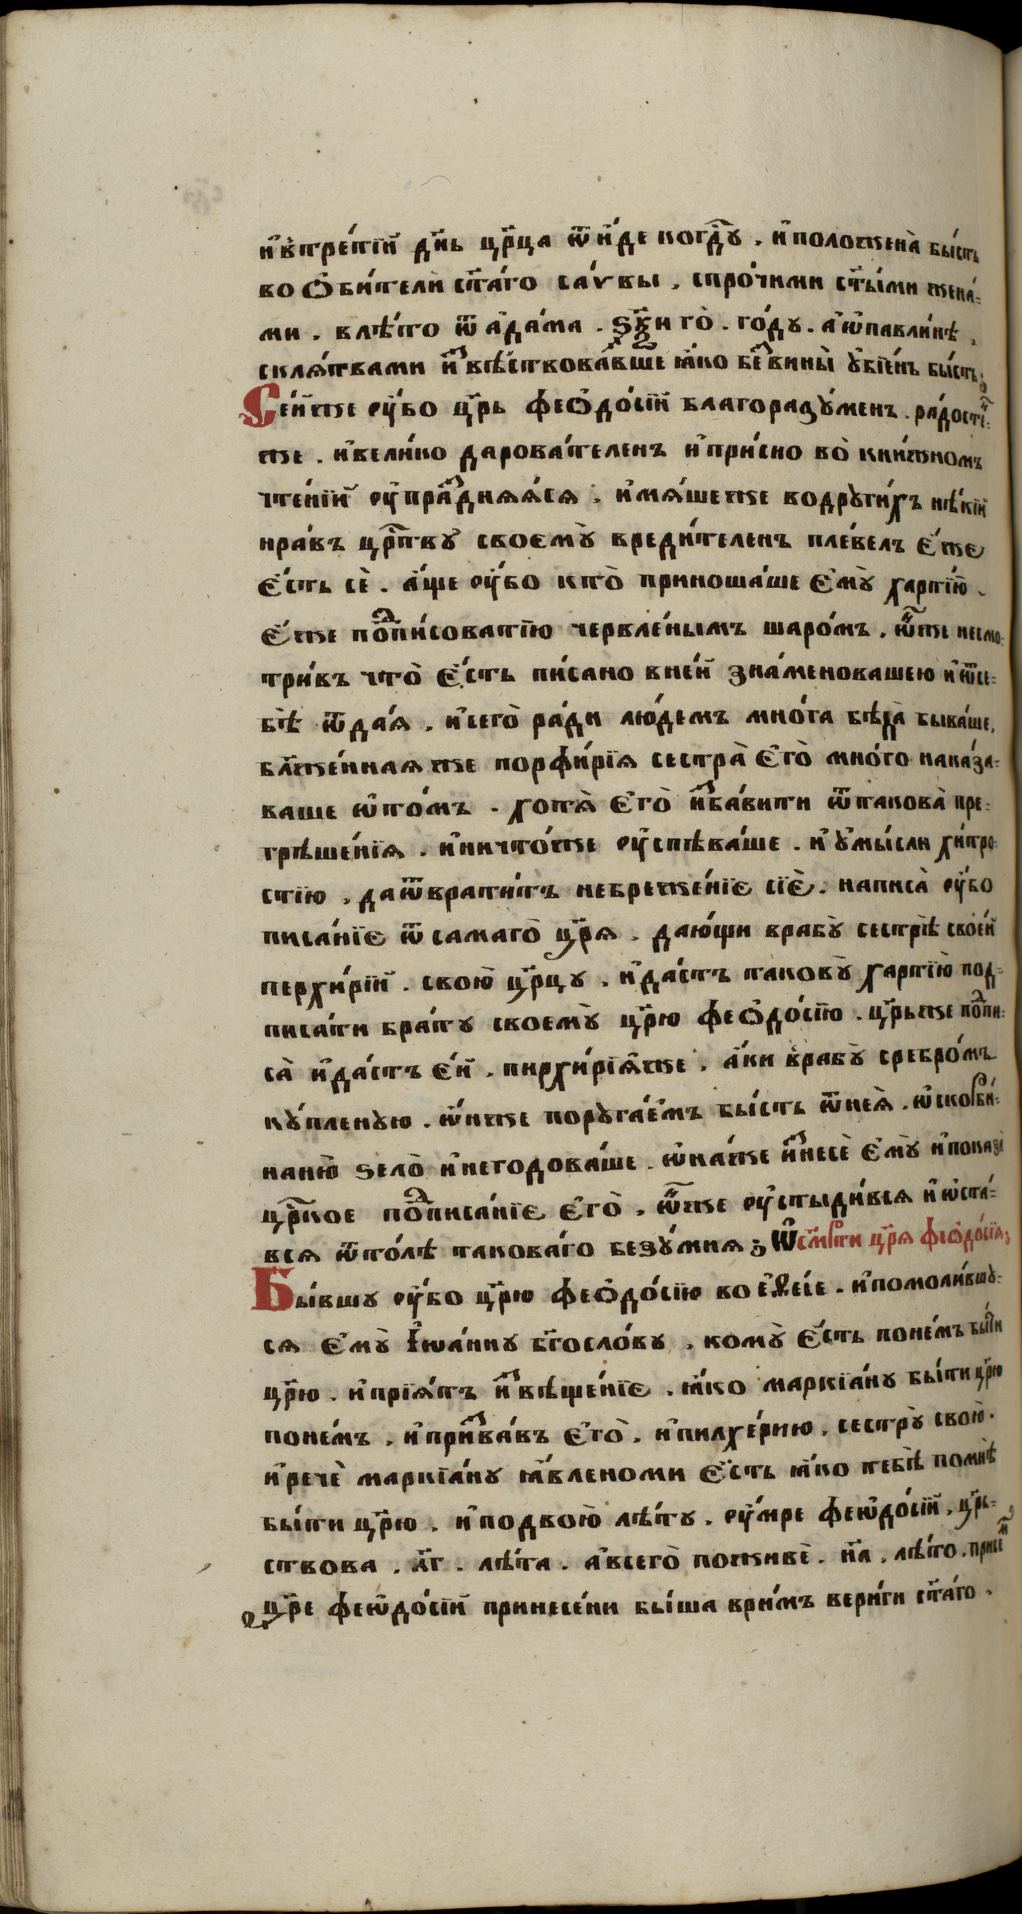 и҆ в̾ третїй дн҃ь цр҃ца ѿи́де ко гд҃ꙋ . и҆ положена̀ бы́сть
во ѻ҆би́тели ст҃а́го са́ѵвы , с прочими ст҃ы́ми жена́-
ми . в лѣ́то ѿ а҆да́ма . го́дꙋ . а҆ ѡ҆ павли́нѣ ,
с клѧ́твами и҆звѣ́ствова́вше ꙗ҆ко бе́з вины̀ ᲂу҆бїе́нъ бы́сть ;
Се́йже ᲂу҆́бо цр҃ь феѻдо́сїй благоразꙋ́менъ . ра́достї-
же . и҆ вели́ко дарова́теленъ и҆ при́сно во̀ кни́жномъ
чте́нїй ᲂу҆пра́дняѧсѧ . и҆мѧ́шеже во дрꙋги́хъ нѣ́кїй
нра́въ цр҃твꙋ̀ своемꙋ̀ вреди́теленъ пле́велъ є҆́же
є҆́сть сѐ . а҆́ще ᲂу҆́бо кто̀ приноша́ше є҆мꙋ̀ ха́ртїю .
є҆́же по́дпи́совати́ю червле́нымъ шаро́мъ . ѻ҆́нже не смо-
три́въ что̀ є҆́сть пи́сано в не́й зна́меноваше ю и҆ ѿ се-
бѣ̀ ѿдаѧ̀ . и҆ сего̀ ра́ди лю́демъ мно́га бѣда̀ быва́ше ,
бл҃же́ннаѧже порфи́рїѧ сестра̀ є҆го̀ мно́го наказа-
ваше ѡ҆ то́мъ . хотѧ̀ є҆го̀ и҆зба́вити ѿ такова̀ пре-
грѣше́нїѧ . и҆ ничто́же ᲂу҆спѣва́ше . и҆ ᲂу҆мы́сли хитро-
стїю , да ѿврати́тъ небреже́нїе сїѐ . написа̀ ᲂу҆́бо
писа́нїе ѿ самаго̀ цр҃ѧ . даю́щи в рабꙋ̀ сестрѣ̀ свое́й
перхи́рїй . свою̀ цр҃цꙋ . и҆ да́стъ таковꙋ̀ ха́ртїю под-
писа́ти бра́тꙋ своемꙋ̀ цр҃ю феѻдо́сїю . цр҃ьже подпи-
са̀ и҆ да́стъ є҆́й . пирхи́рїѧ́же . а҆́ки в рабꙋ̀ сребро́мъ
кꙋ́пленꙋю . ѡ҆́нже порꙋга́емъ бы́сть ѿ неѧ̀ . ѡ҆скорби́-
на ню̀ ѕело̀ и҆ негодова́ше . ѡ҆на́же и҆знесѐ є҆мꙋ̀ и҆ показа̀
цр҃кое подписа́нїе є҆го̀ , ѻ҆́нже ᲂу҆стыди́всѧ и҆ ѡ҆ста́-
всѧ ѿто́лѣ такова́го безꙋ́мия ; Ѡ҆ сме́рти цр҃ѧ феѻдо́сїѧ ;
Бы́вшꙋ ᲂу҆́бо цр҃ю феѻдо́сїю во є҆ѳе́се . и҆ помоли́вшꙋ-
сѧ є҆мꙋ̀ І҆ѡа́ннꙋ бг҃осло́вꙋ , комꙋ̀ є҆́сть по не́мъ бы́ти
цр҃ю . и҆ прїѧ́тъ и҆звѣще́нїе . ꙗ҆ко маркїа́нꙋ бы́ти цр҃ю
по не́мъ . и҆ призва́въ є҆го̀ . и҆ пилхе́рию . сестрꙋ̀ свою̀ .
и҆ речѐ маркїа́нꙋ ꙗ҆влено ми є҆́сть ꙗ҆ко тебѣ̀ по мнѣ̀
бы́ти цр҃ю . и҆ по двою̀ лѣ́тꙋ . ᲂу҆́мре феѡдо́сїй . цр҃ь-
ствова . л҃г . лѣ́та . а҆ всего̀ поживѐ . н҃а . лѣ́то . при се́м
цр҃е феѡдо́сїй принесе́ни бы́ша в ри́мъ вери́ги ст҃а́го .